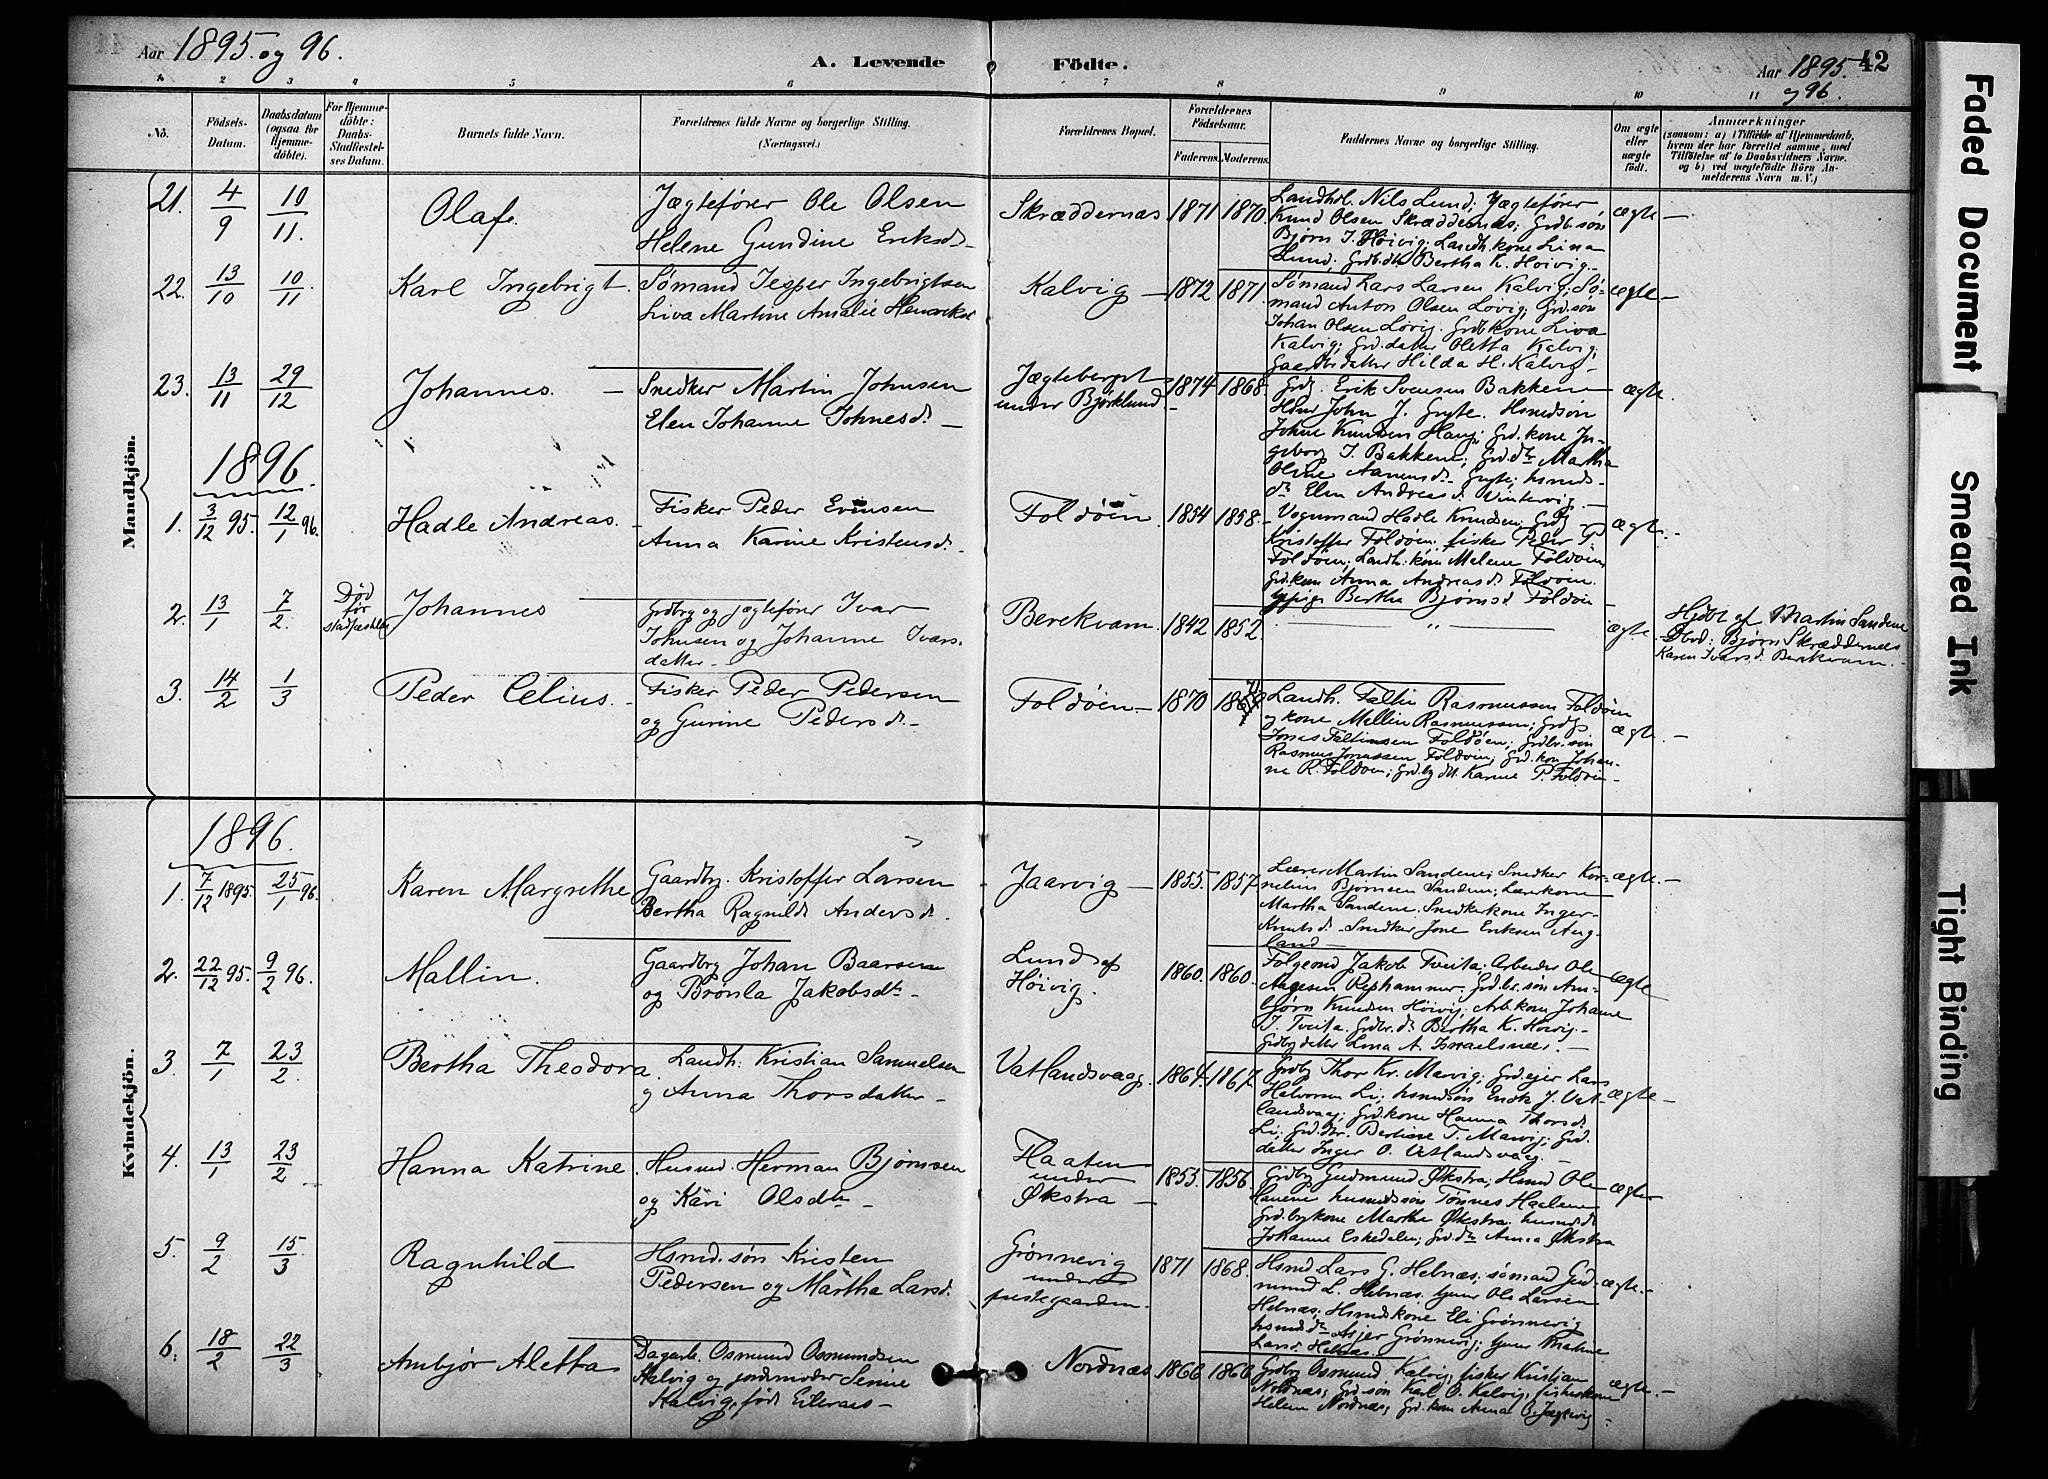 Aar 1895 og 96.
A. Levende Födte.
Aar 1895 og 96.
42
1 2 3 4 5 6 7 8 9 10 11
No.
Födsels-Datum.
Daabsdatum (ogsaa for Hjemmedöbte).
For Hjemmedöbte: Daabs-Stadfæstelses Datum.
Barnets fulde Navn.
Forældrenes fulde Navne og borgerlige Stilling. (Næringsvei.)
Forældrenes Bopæl.
Forældrenes Födselsaar.
Faderens. Moderens.
Faddernes Navne og borgerlige Stilling.
Om ægte eller uægte födt.
Anmærkninger
(saasom: a) i Tilfælde af Hjemmedaab, hvem der har forrettet samme, med Tilföielse af to Daabsvidners Navne, og b) ved uægtefödte Börn Anmelderens Navn m. V.)
Mandkjön.
21. 4/9 10/11. Olaf. Jægtefører Ole Olsen
Helene Gundine Eriksd. Skræddernæs 1871 1870.
Landhdl. Nils Lund; Jægtefører
Knud Olsen Skræddernæs; Grdb.søn
Bjørn J. Høivig; Landh.kone Lina
Lund; Grdb.dtr Bertha K. Høivig.
ægte
22. 13/10 10/11. Karl Ingebrigt. Sømand Jesper Ingebrigtsen
Liva Martine Amalie Henriksd. Kalvig 1872 1871.
Sømand Lars Larsen Kalvig; Sø-
mand Anton Olsen Løvig; Grd.søn
Johan Olsen Løvig. Grdb.kone Liva
Kalvig; Grd.datter Oletta Kalvig;
Gaardbr.datter Hilda H. Kalvig.
ægte.
23. 13/11 29/12 Johannes. Snedker Martin Johnsen
Elen Johanne Johnesd. Jægteberget
under Bjørklund. 1874 1868.
Grdbr. Erik Svensen Bakken
Hsmd John J. Gryte. Hsmdsøn
Johne Knudsen Haug; Grd.kone In-
geborg I. Bakken; Grd.dtr Martha
Oline Aanensd. Gryte; husmds-
dtr Elen Andreasd. Vintervig
ægte.
1896
1. 3/12 95. 12/1 96. Hadle Andreas. Fisker Peder Evensen
Anna Karine Kristensd. Foldøen. 1854 1858.
Vognmand Hadle Knudsen; Grdbr.
Kristoffer Foldøen; fisker Peder P.
Foldøen; Landh.kone Melene Foldøen
Grd.kone Anna Andreasd. Foldøen.
pige Bertha Bjørnsd. Foldøen
ægte.
2. 13/1 7/2. Død før stadfæstelse Johannes Grdbrg og jægtefører Ivar
Johnsen og Johanne Ivars-
datter Berekvam. 1842 1852. „ ægte.
Hjdbt af Martin Sandene
Dbvd: Bjørn Skræddernes
Karen Ivarsd. Berekvam.
3. 14/2 1/3 Peder Celius. Fisker Peder Pedersen
og Gurine Pedersd. Foldøen. 1870
Landh. Faltin Rasmussen Foldøen
og kone Mallin Rasmussen; Grdbr.
Jonas Faltinsen Foldøen; Grdbr.søn
Rasmus Jonassen Foldøen; Grd.kone Johan-
ne R. Foldøen; Grdbg.dtr Karine P. Foldøen.
ægte.
Kvindekjön.
1896.
1. 7/12 1895. 25/1 96. Karen Margrethe Gaardbr. Kristoffer Larsen
Bertha Ragnilde Andersd. Jaarvig 1855. 1857.
Lærer Martin Sandene; Snedker Kor-
nelius Bjørnsen Sandene; Lærerkone
Martha Sandene. Snedkerkone Inger
Knutsd. Snedker Jone Eriksen Aug-
land
ægte.
2. 22/12 95. 9/2 96. Mallin. Gaardbrg Johan Baarsen
og Brønla Jakobsdtr Lund af
Høivig. 1860. 1860.
Folgemd Jakob Tveita; Arbeider Ole
Aagesen Rephammer. Grdbr.søn Am-
bjørn Knudsen Høivig; Arb.kone Johanne
J. Tveita. Grdbr.d. Bertha K. Høivig.
Grdbrdatter Lina A. Israelsnes.
ægte
3. 7/1 23/2. Bertha Theodora. Landh. Kristian Samuelsen
og Anna Thorsdatter Vatlandsvaag. 1864. 1867.
Grdbr Thor Kr. Marvig; Grd.ejer Lars
Halvorsen Li; husmdsøn Endr. J. Vat-
landsvaag; Grd.kone Hanna Thorsd.
Li; Grd.dtr. Bertine T. Marvig; Grd.
datter Inger O. Vatlandsvaag
ægte
4. 13/1 23/2 Hanna Katrine. Husmd. Herman Bjørnsen
og Kari Olsdtr Haaten
under
Økstra 1853. 1856.
Grdbr Gudmund Økstra; Hsmd Ole
husmdssøn Tønnes Haalene
Grdbrkone Marthe Økstra. husmd.d.
Johanne Eskedalen; Grd.dtr Anna Økstra
ægte
5. 9/2 15/3 Ragnhild Hsmd.søn Kristen
Pedersen og Martha Larsd. Grønnevig
under
prestegaarden. 1871 1868.
Hsmd Lars G. Helnæs; sømand Gud-
mund L. Helnæs. Ole Larsen
Helnæs; Hsmdkone Eli Grønnevig
husmd.dtr Asjer Grønnevig;
Larsd. Helnæs.
ægte.
6. 18/2 22/3 Ambjør Aletta Dagarb. Osmund Osmundsen
Kalvig og jordmoder Serine
Kalvig, født Eilevas Nordnæs 1866 1860
Grdbr Osmund Kalvig; fisker Kristian
Nordnæs; Grd.søn Karl O. Kalvig; fiskerkone
Helene Nordnæs; Grd.kone Anna O. Jægtevig.
ægte.
Faded Document
Smeared Ink
Tight Binding